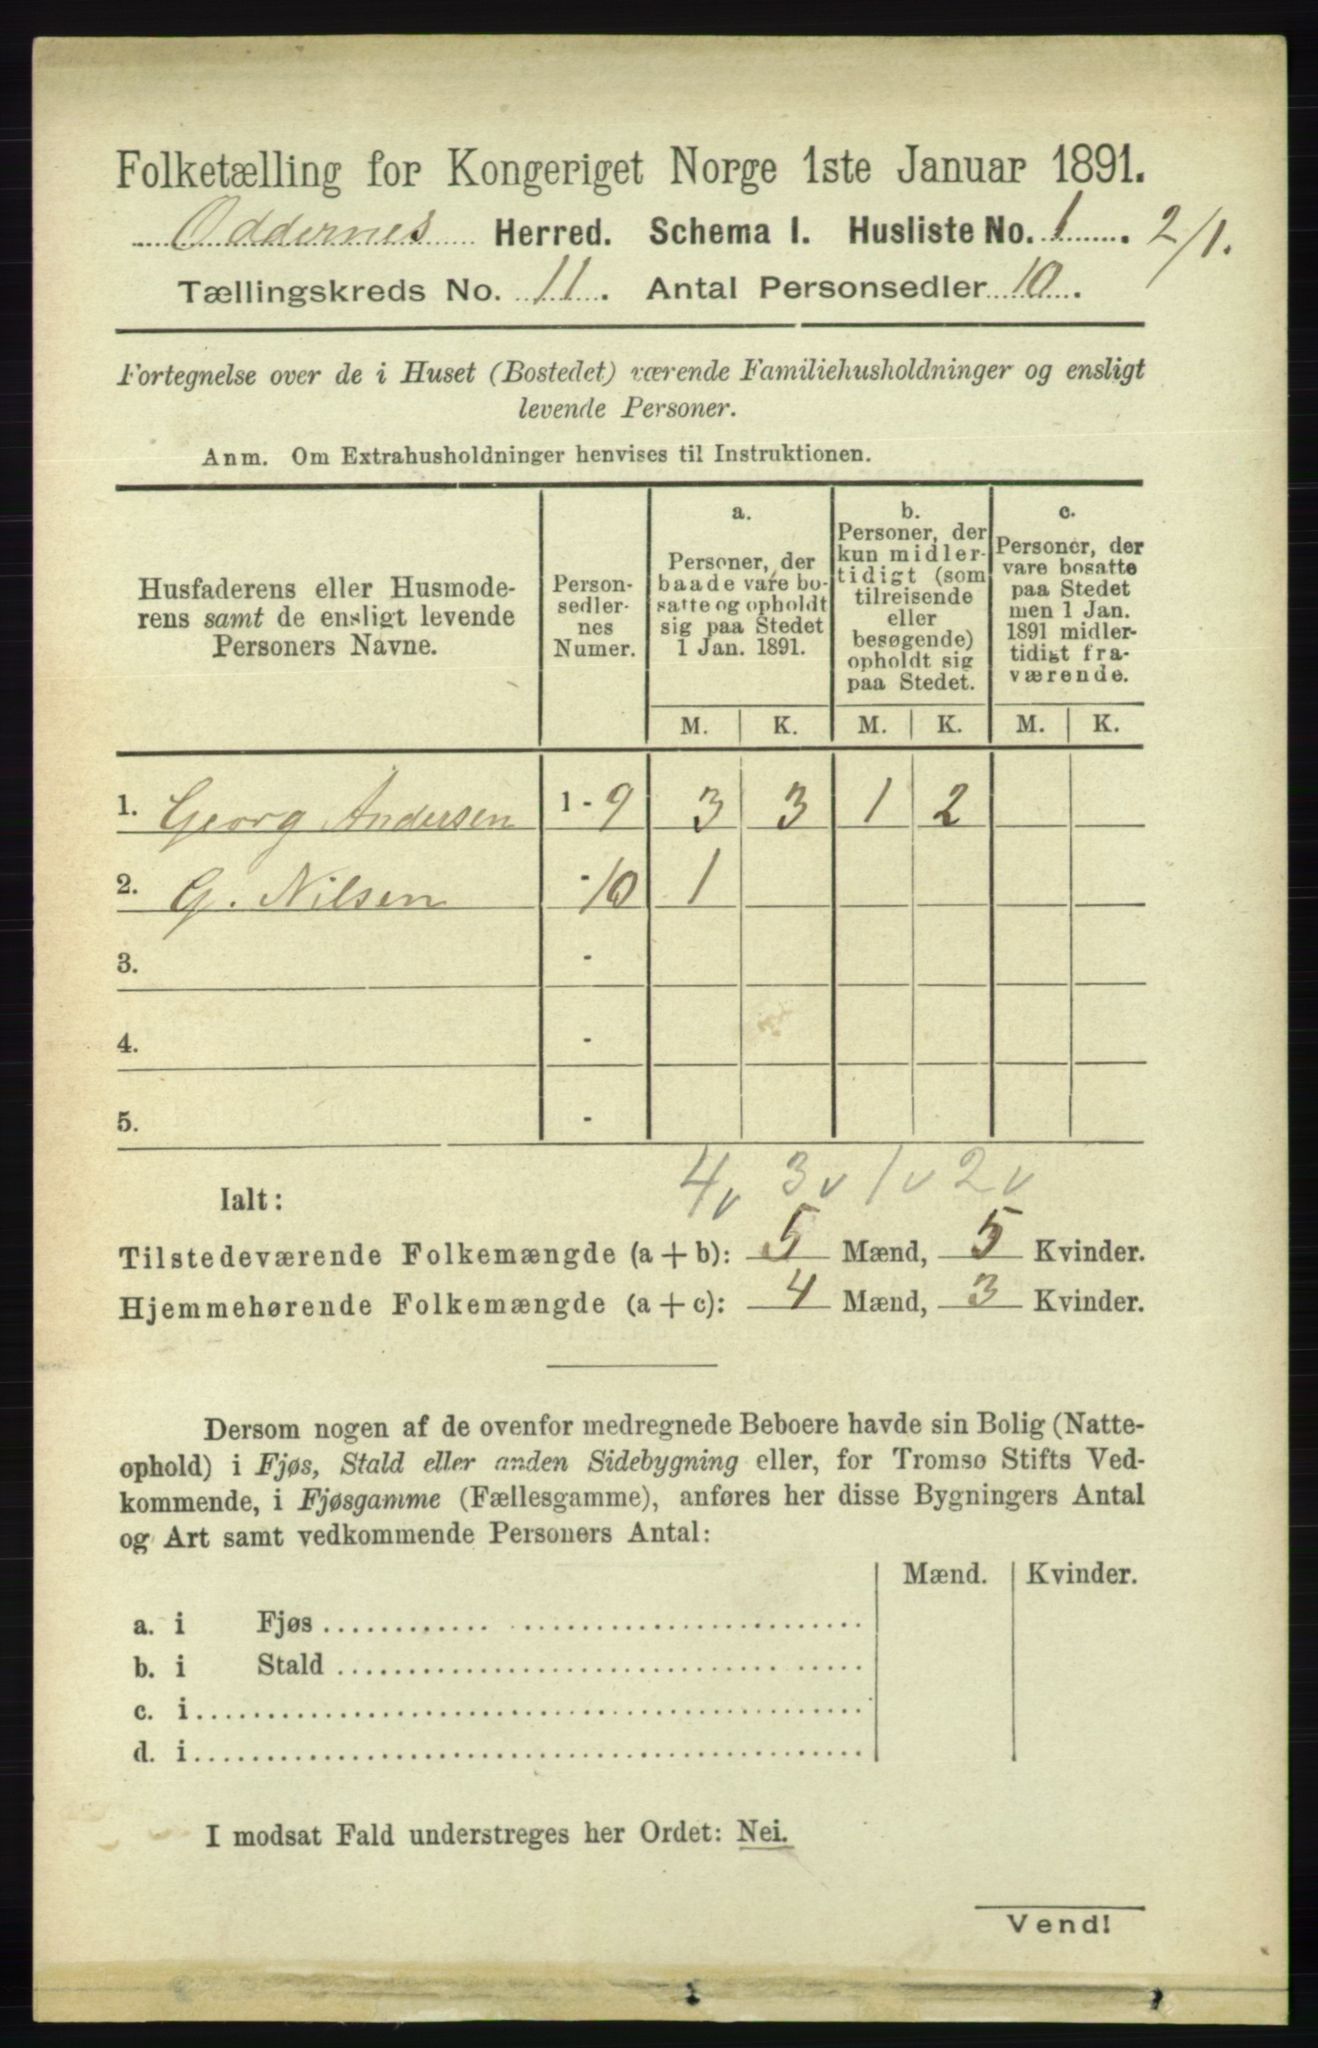 Folketælling for Kongeriget Norge 1ste Januar 1891.
Oddernes Herred. Schema I. Husliste No. 1. 2/1.
Tællingskreds No. 11. Antal Personsedler 10.
Fortegnelse over de i Huset (Bostedet) værende Familiehusholdninger og ensligt
levende Personer.
Anm. Om Extrahusholdninger henvises til Instruktionen.
Husfaderens eller Husmode-
rens samt de ensligt levende
Personers Navne.
Person-
sedler-
nes
Numer.
a.
Personer, der
baade vare bo-
satte og opholdt
sig paa Stedet
1 Jan. 1891.
b.
Personer, der
kun midler-
tidigt (som
tilreisende
eller
besøgende)
opholdt sig
paa Stedet.
c.
Personer, der
vare bosatte
paa Stedet
men 1 Jan.
1891 midler-
tidigt fra-
værende.
M. K. M. K. M. K.
1. Georg Andersen 1-9 3 3 1 2
2. G. Nilsen -10 1
3. -
4. -
5. -
Ialt: 4v 3v 1v 2v
Tilstedeværende Folkemængde (a + b): 5 Mænd, 5 Kvinder.
Hjemmehørende Folkemængde (a + c): 4 Mænd, 3 Kvinder.
Dersom nogen af de ovenfor medregnede Beboere havde sin Bolig (Natte-
ophold) i Fjøs, Stald eller anden Sidebygning eller, for Tromsø Stifts Ved-
kommende, i Fjøsgamme (Fællesgamme), anføres her disse Bygningers Antal
og Art samt vedkommende Personers Antal:
Mænd. Kvinder.
a. i Fjøs
b. i Stald
c. i
d. i
I modsat Fald understreges her Ordet: Nei.
Vend!